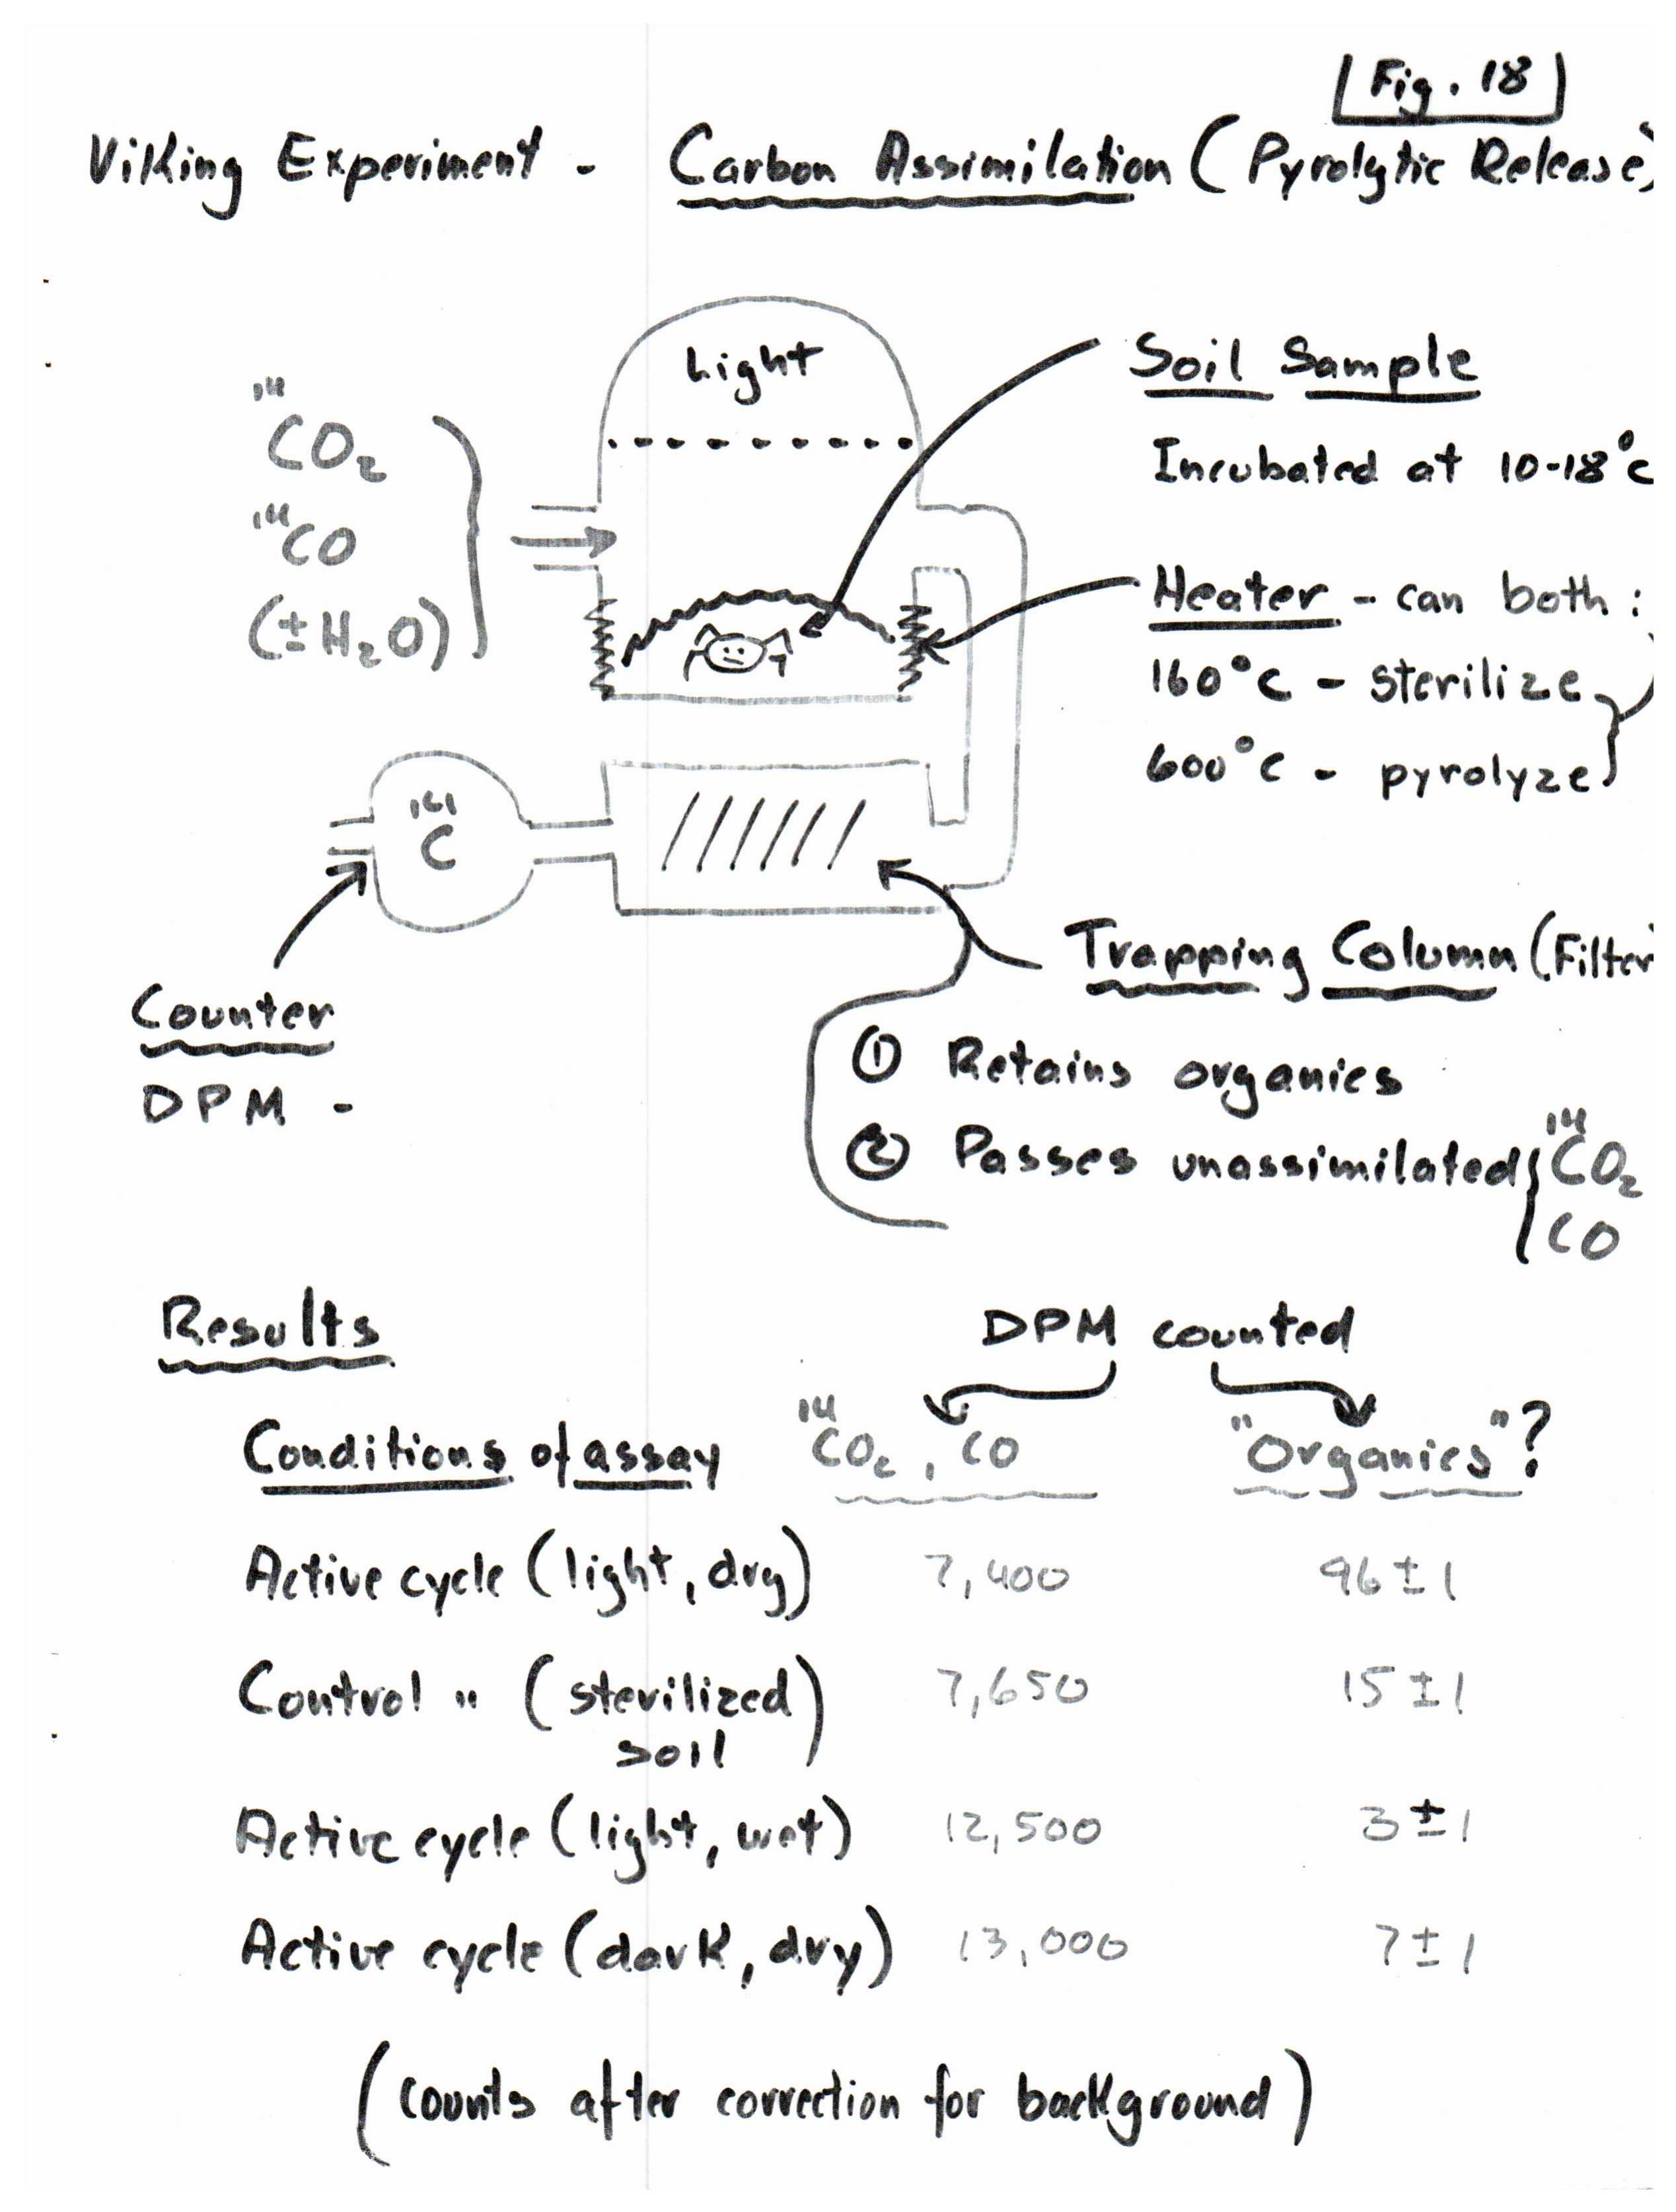 Fig. 18
Viking Experiment - Carbon Assimilation (Pyrolytic Release)
Light
Soil Sample
Incubated at 10-18°C
¹⁴CO₂
¹⁴CO
(±H₂O)
Heater - can both:
160°C - sterilize
600°C - pyrolyze
¹⁴C
Trapping Column (Filter
Counter
DPM -
① Retains organics
② Passes unassimilated { ¹⁴CO₂
CO
Results
DPM counted
Conditions of assay ¹⁴CO₂, CO "Organics"?
Active cycle (light, dry) 7,400 96 ± 1
Control " (sterilized soil) 7,650 15 ± 1
Active cycle (light, wet) 12,500 3 ± 1
Active cycle (dark, dry) 13,000 7 ± 1
(counts after correction for background)